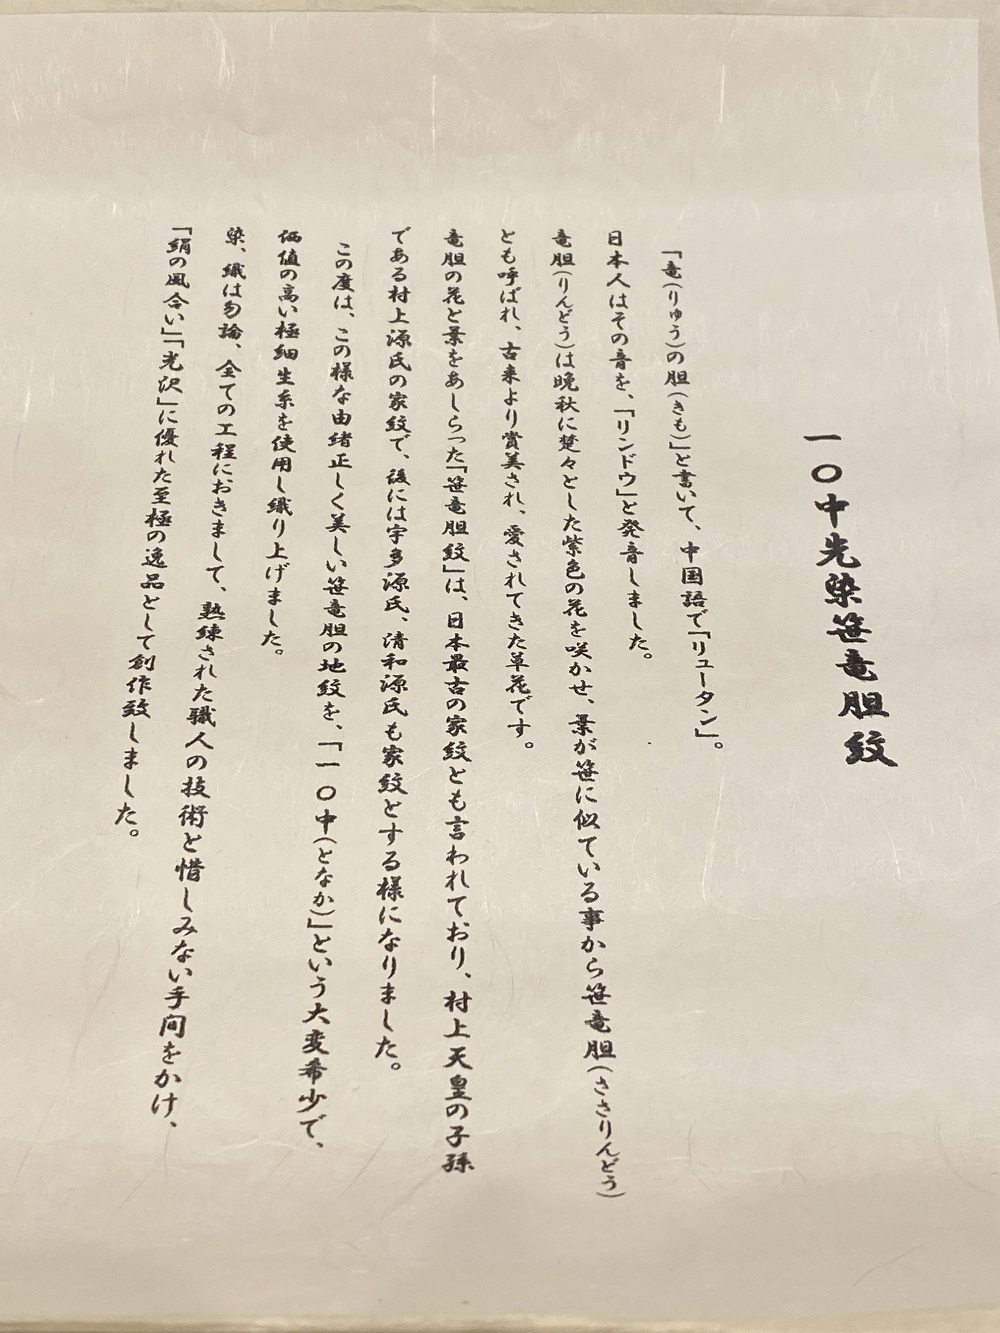 一〇中先染笹竜胆紋
「竜(りゅう)の胆(きも)」と書いて、中国語で「リュータン」。
日本人はその音を、「リンドウ」と発音しました。
竜胆(りんどう)は晩秋に楚々とした紫色の花を咲かせ、葉が笹に似ている事から笹竜胆(ささりんどう)
とも呼ばれ、古来より賞美され、愛されてきた草花です。
竜胆の花と葉をあしらった「笹竜胆紋」は、日本最古の家紋とも言われており、村上天皇の子孫
である村上源氏の家紋で、後には宇多源氏、清和源氏も家紋とする様になりました。
この度は、この様な由緒正しく美しい笹竜胆の地紋を、「一〇中(となか)」という大変希少で、
価値の高い極細生糸を使用し織り上げました。
染、織は勿論、全ての工程におきまして、熟練された職人の技術と惜しみない手間をかけ、
「絹の風合い」「光沢」に優れた至極の逸品として創作致しました。